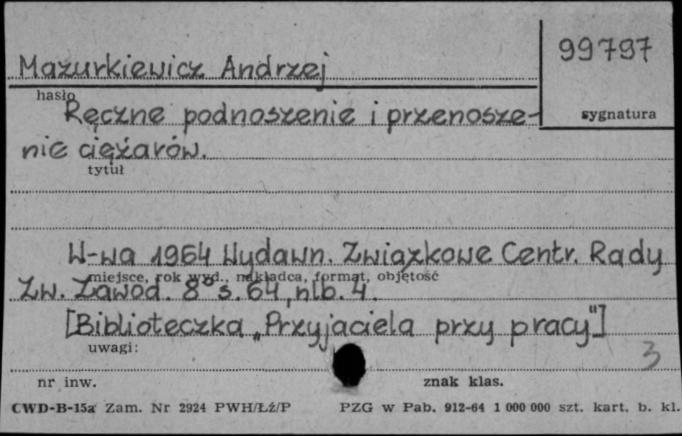 99797
Mazurkiewicz Andrzej
hasło
sygnatura
Ręczne podnoszenie i przenosze-
nie ciężarów.
tytuł
W-wa 1964 Wydawn. Związkowe Centr. Rady
miejsce, rok wyd., nakładca, format, objętość
Zw. Zawod. 8° s. 64, nlb. 4.
[Biblioteczka „Przyjaciela przy pracy"]
uwagi:
3
nr inw.
znak klas.
CWD-B-15a Zam. Nr 2924 PWH/Łź/P PZG w Pab. 912-64 1 000 000 szt. kart. b. kl.